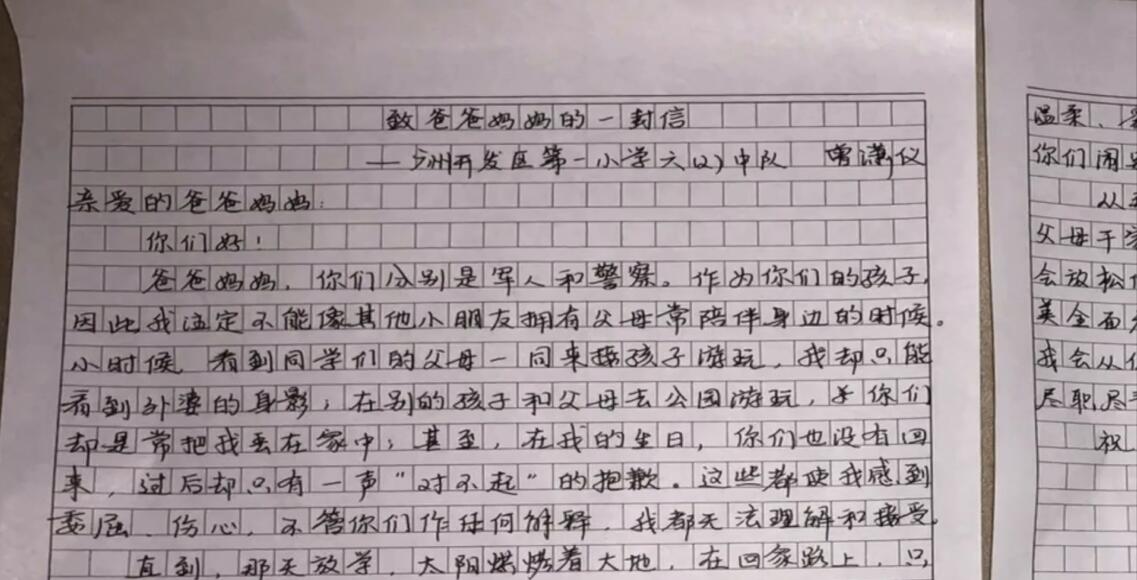 致爸爸妈妈的一封信
——泸洲开发区第一小学六(2)中队 曾潇仪
亲爱的爸爸妈妈：
你们好！
爸爸妈妈，你们分别是军人和警察。作为你们的孩子，
因此我注定不能像其他小朋友拥有父母常陪伴身边的时候。
小时候，看到同学们的父母一同来接孩子游玩，我却只能
看到外婆的身影；在别的孩子和父母去公园游玩，而你们
却是常把我丢在家中；甚至，在我的生日，你们也没有回
来，过后却只有一声“对不起”的抱歉。这些都使我感到
委屈、伤心，不管你们作任何解释，我都无法理解和接受。
直到，那天放学，太阳烘烤着大地，在回家路上，只
温柔、
你们闹
从
父母干
会放松
美全面
我会从
尽职尽
祝